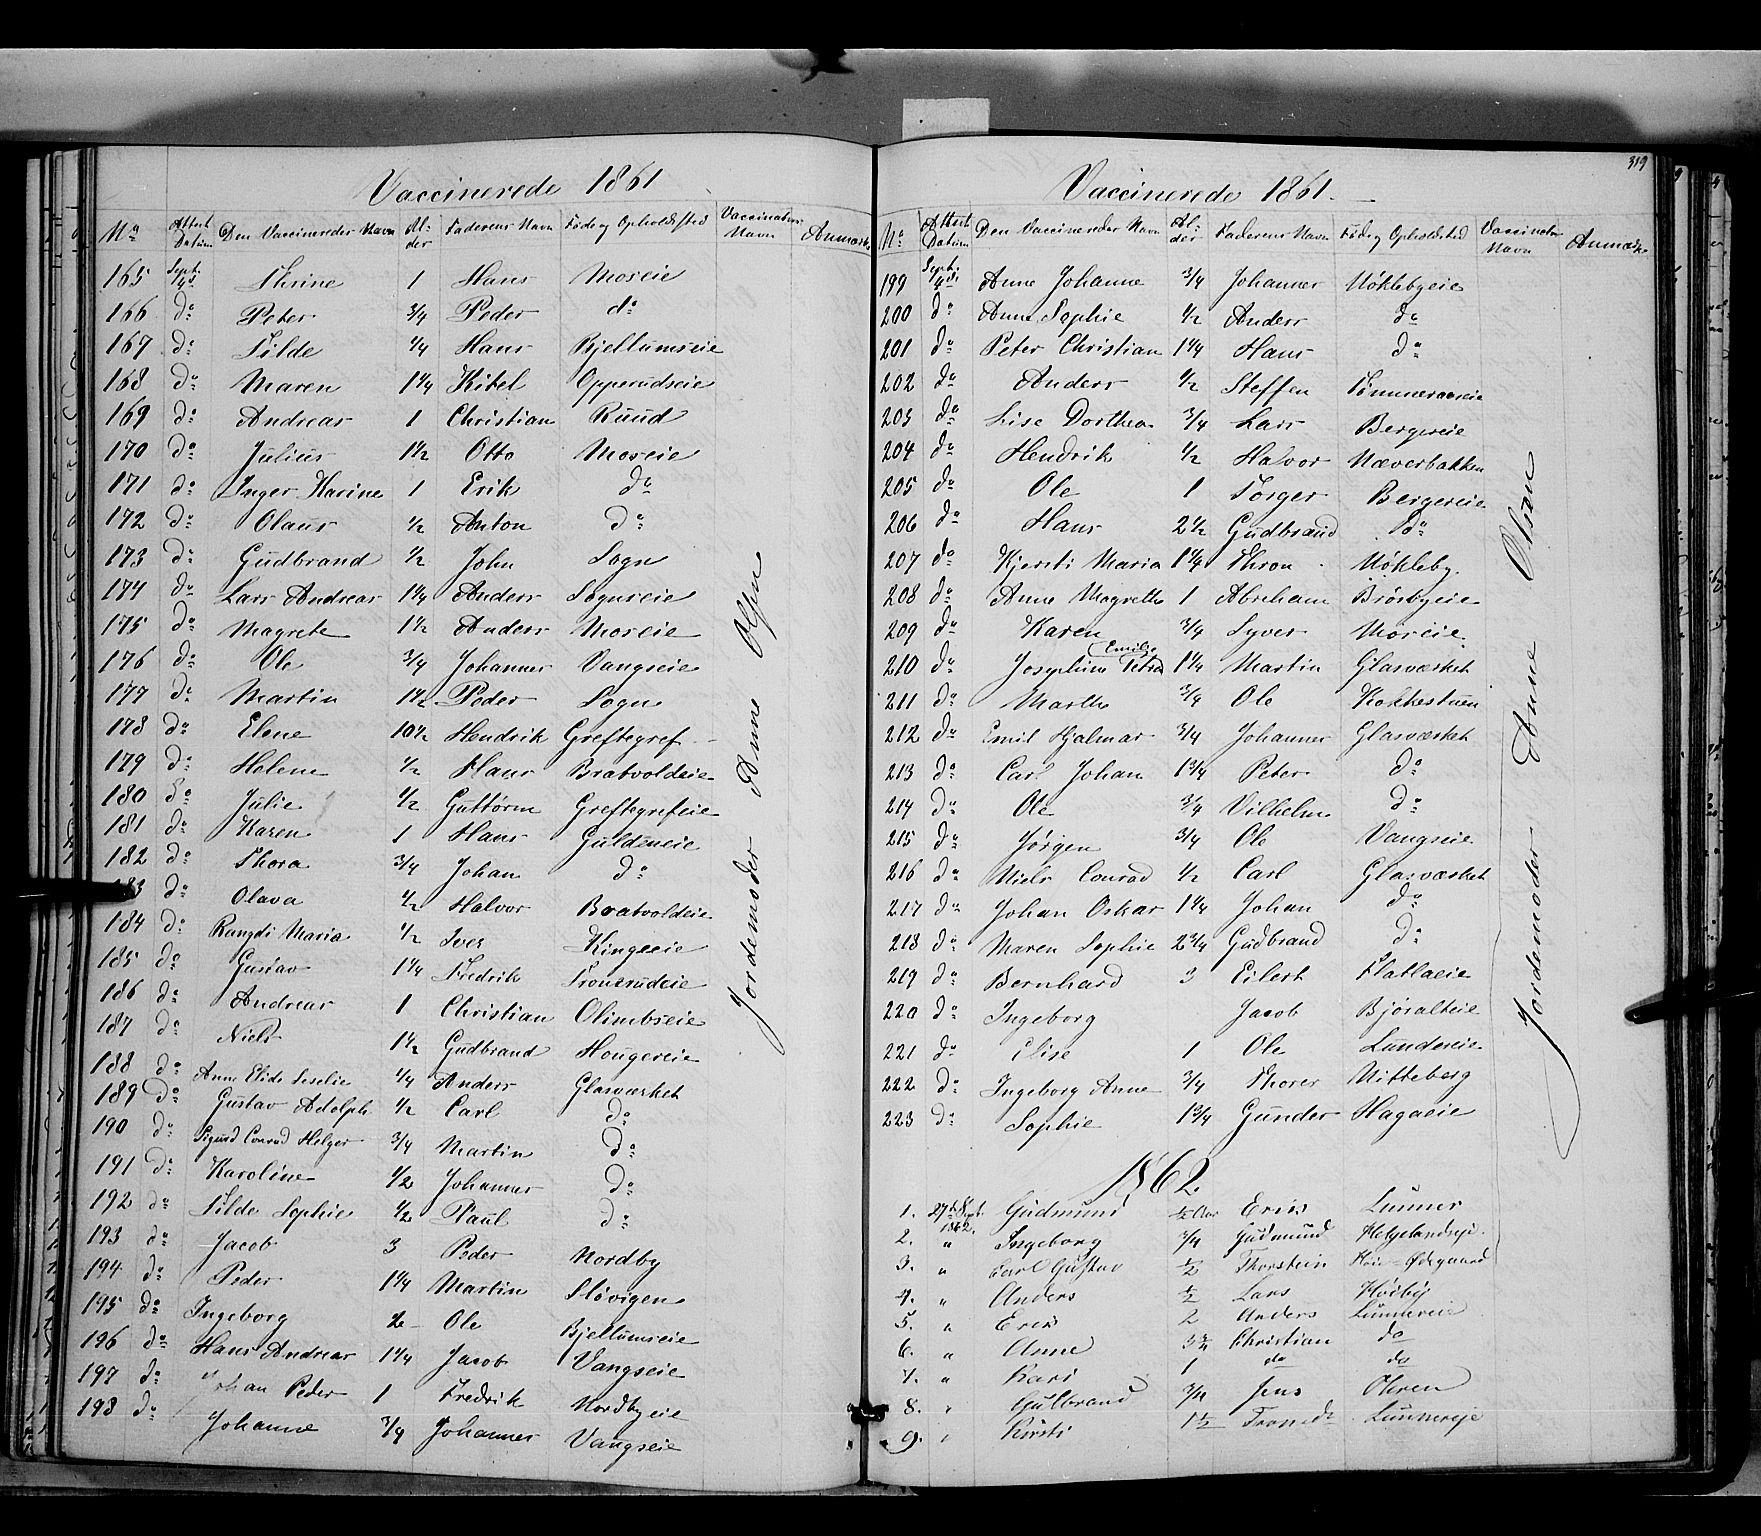 Vaccinerede 1861
No Attest Datum Den Vaccinereder Navn Alder Faderens Navn Føde og Opholdssted Vaccinateurs Navn Anmærk
165 Sept. 4de Thrine 1 Hans Moseie
166 do Peter 3/4 Peder do
167 do Silde 1/4 Hans Bjellumseie
168 do Maren 1 1/4 Kitel Opperudseie
169 do Andreas 1 Christian Ruud
170 do Julius 1 1/2 Otto Moseie
171 do Inger Karine 1 Erik do
172 do Olaus 1/2 Anton do
173 do Gudbrand 1/2 John Sogn
174 do Lars Andreas 1 1/4 Anders Sognseie
175 do Magrete 1 1/2 Anders Moseie
176 do Ole 3/4 Johannes Vangseie
177 do Martin 1 1/2 Peder Sogn
178 do Elene 10 1/2 Hendrik Greftegref
179 do Helene 1/2 Hans Bratvoldeie
180 do Julie 1/2 Guttorm Greftegrefeie
181 do Karen 1 Hans Guldeneie
182 do Thora 3/4 Johan do
183 do Olava 1/2 Halvor Bratvoldeie
184 do Rangdi Maria 1/2 Iver Kingeeie
185 do Gustav 1 1/4 Fredrik Tronsrudeie
186 do Andreas 1 Christian Olimbseie
187 do Niels 1 1/2 Gudbrand Hougereie
188 do Anne Elide Leselie 1/4 Anders Glasværket
189 do Gustav Adolph 1/2 Carl do
190 do Sigurd Conrad Helger 3/4 Martin do
191 do Karoline 1/2 Johannes do
192 do Silde Sophie 1/2 Paul do
193 do Jacob 3 Peder Nordby
194 do Peder 1 1/4 Martin Sløvigen
195 do Ingeborg 2 Ole Bjellumseie
196 do Hans Andreas 1 1/4 Jacob Vangseie
197 do Johan Peder 1 Fredrik Nordbyeie
198 do Johanne 3/4 Johannes Vangseie
Jordemoder Anne Olsen
319
Vaccinerede 1861.
No Attest Datum Den Vaccinereder Navn Alder Faderens Navn Føde og Opholdssted Vaccinateur Navn Anmærk
199 Sept. 4de Anne Johanne 3/4 Johannes Nøklebyeie
200 do Anne Sophie 1/2 Anders do
201 do Peter Christian 1 1/4 Hans do
202 do Anders 1/2 Steffen Tømmeraaseie
203 do Lise Dorthea 3/4 Lars Bergereie
204 do Hendrik 1/2 Halvor Næverbakken
205 do Ole 1 Torger Bergereie
206 do Hans 2 1/2 Gudbrand do
207 do Kjersti Maria 1 1/4 Thron Nøkleby
208 do Anne Magrethe 1 Abraham Brørbyeie
209 do Karen 3/4 Syver Moreie
210 do Josephine Emilie Petra 1 1/4 Martin Glasværket
211 do Marthe 3/4 Ole Kokkestuen
212 do Emil Hjalmar 3/4 Johannes Glasværket
213 do Carl Johan 1 3/4 Peter do
214 do Ole 3/4 Vilhelm do
215 do Jørgen 3/4 Ole Vangseie
216 do Niels Conrad 1/2 Carl Glasværket
217 do Johan Oskar 1 1/4 Johan do
218 do Maren Sophie 2 3/4 Gudbrand do
219 do Bernhard 3 Eilert Flatlaeie
220 do Ingeborg Jacob Bjøralteie
221 do Elise 1 Ole Lundereie
222 do Ingeborg Anne 3/4 Thorer Mitteberg
223 do Sophie 1 3/4 Gunder Hagaeie
Jordemoder Anne Olsen
1862
1. 27de Sept. 1862. Gudmund 1/2 Aar Erik Lunner
2. " Ingeborg 3/4 Gudmund Helgelandseje
3. " Carl Gustav 1/2 Thorstein Ødegaard
4. " Anders 1/2 Lars Horby
5. " Erik 2 Anders Lunnereie
6. " Anne 3 3/4 Christian do
7. " Kari 1 do do
8. " Gulbrand 3/4 Jens Ohren
9. " Kirsti 1 1/2 Trond Lunnereje